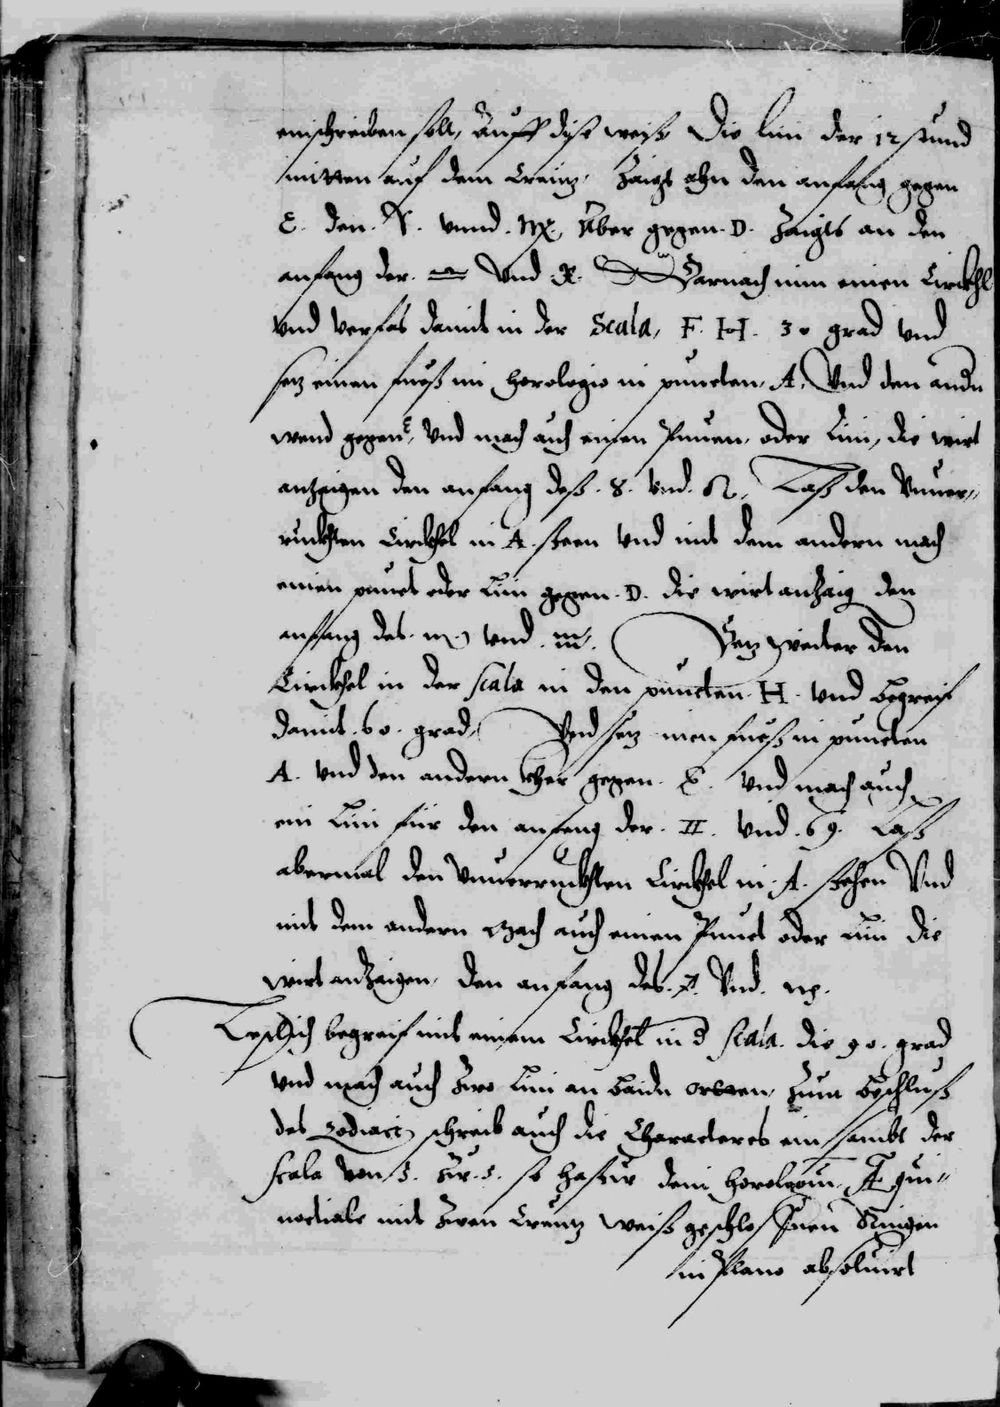 einschreiben soll, Auff dise weiß Die lini der 12 stund
mitten auf dem Creütz, Zaigt ahn den anfang gegen
E. den. ♈. vnnd. ♍. Aber gegen. D. Zaigts an den
anfang der. ♎ Vnd ♓. Darnach nim einen Circkhl
Vnd Verfas damit in der Scala, F. H. 30 grad Vnd
setz einen fueß im horologio in puncten A, Vnd den andn
wend gegen E, Vnd mach auch einen Puncten, oder Lini, die wirt
anzeigen den anfang deß. ♉. Vnd. ♌. Laß den Vnuer,,
ruckhten Circkhel in A. steen Vnd mit dem andern mach
einen punct oder Lini gegen. D. die wirt anzaig den
anfang des. ♏ Vnd. ♒. Setz weiter den
Circkhel in der Scala in den puncten. H. Vnd begreif
damit. 60. grad, Vnd setz einen fueß in puncten
A. Vnd den andern Aber gegen. E. Vnd mach auch
ein Lini für den anfang der. ♊. Vnd. ♋. Laß
abermal den Vnuerruckhten Circkhel in. A. stehen Vnd
mit dem andern Mach auch einen Punct oder Lini die
wirt anzaigen, den anfang des. ♐. Vnd. ♑.
Letzlich begreif mit einem Circkhel in d Scala. die 90. grad
Vnd mach auch Zwo Lini an baiden orten, Zum beschluß
des Zodiaci, schreib auch die Characteres ein, sambt der
Scala von 5. Zu. 5. so hastu dein horologium Æqui,,
noctiale mit Zwen Creütz weiß geschlossnen Ringen
in Plano absoluirt